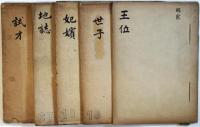 王位
世子
妃嬪
地誌
試才